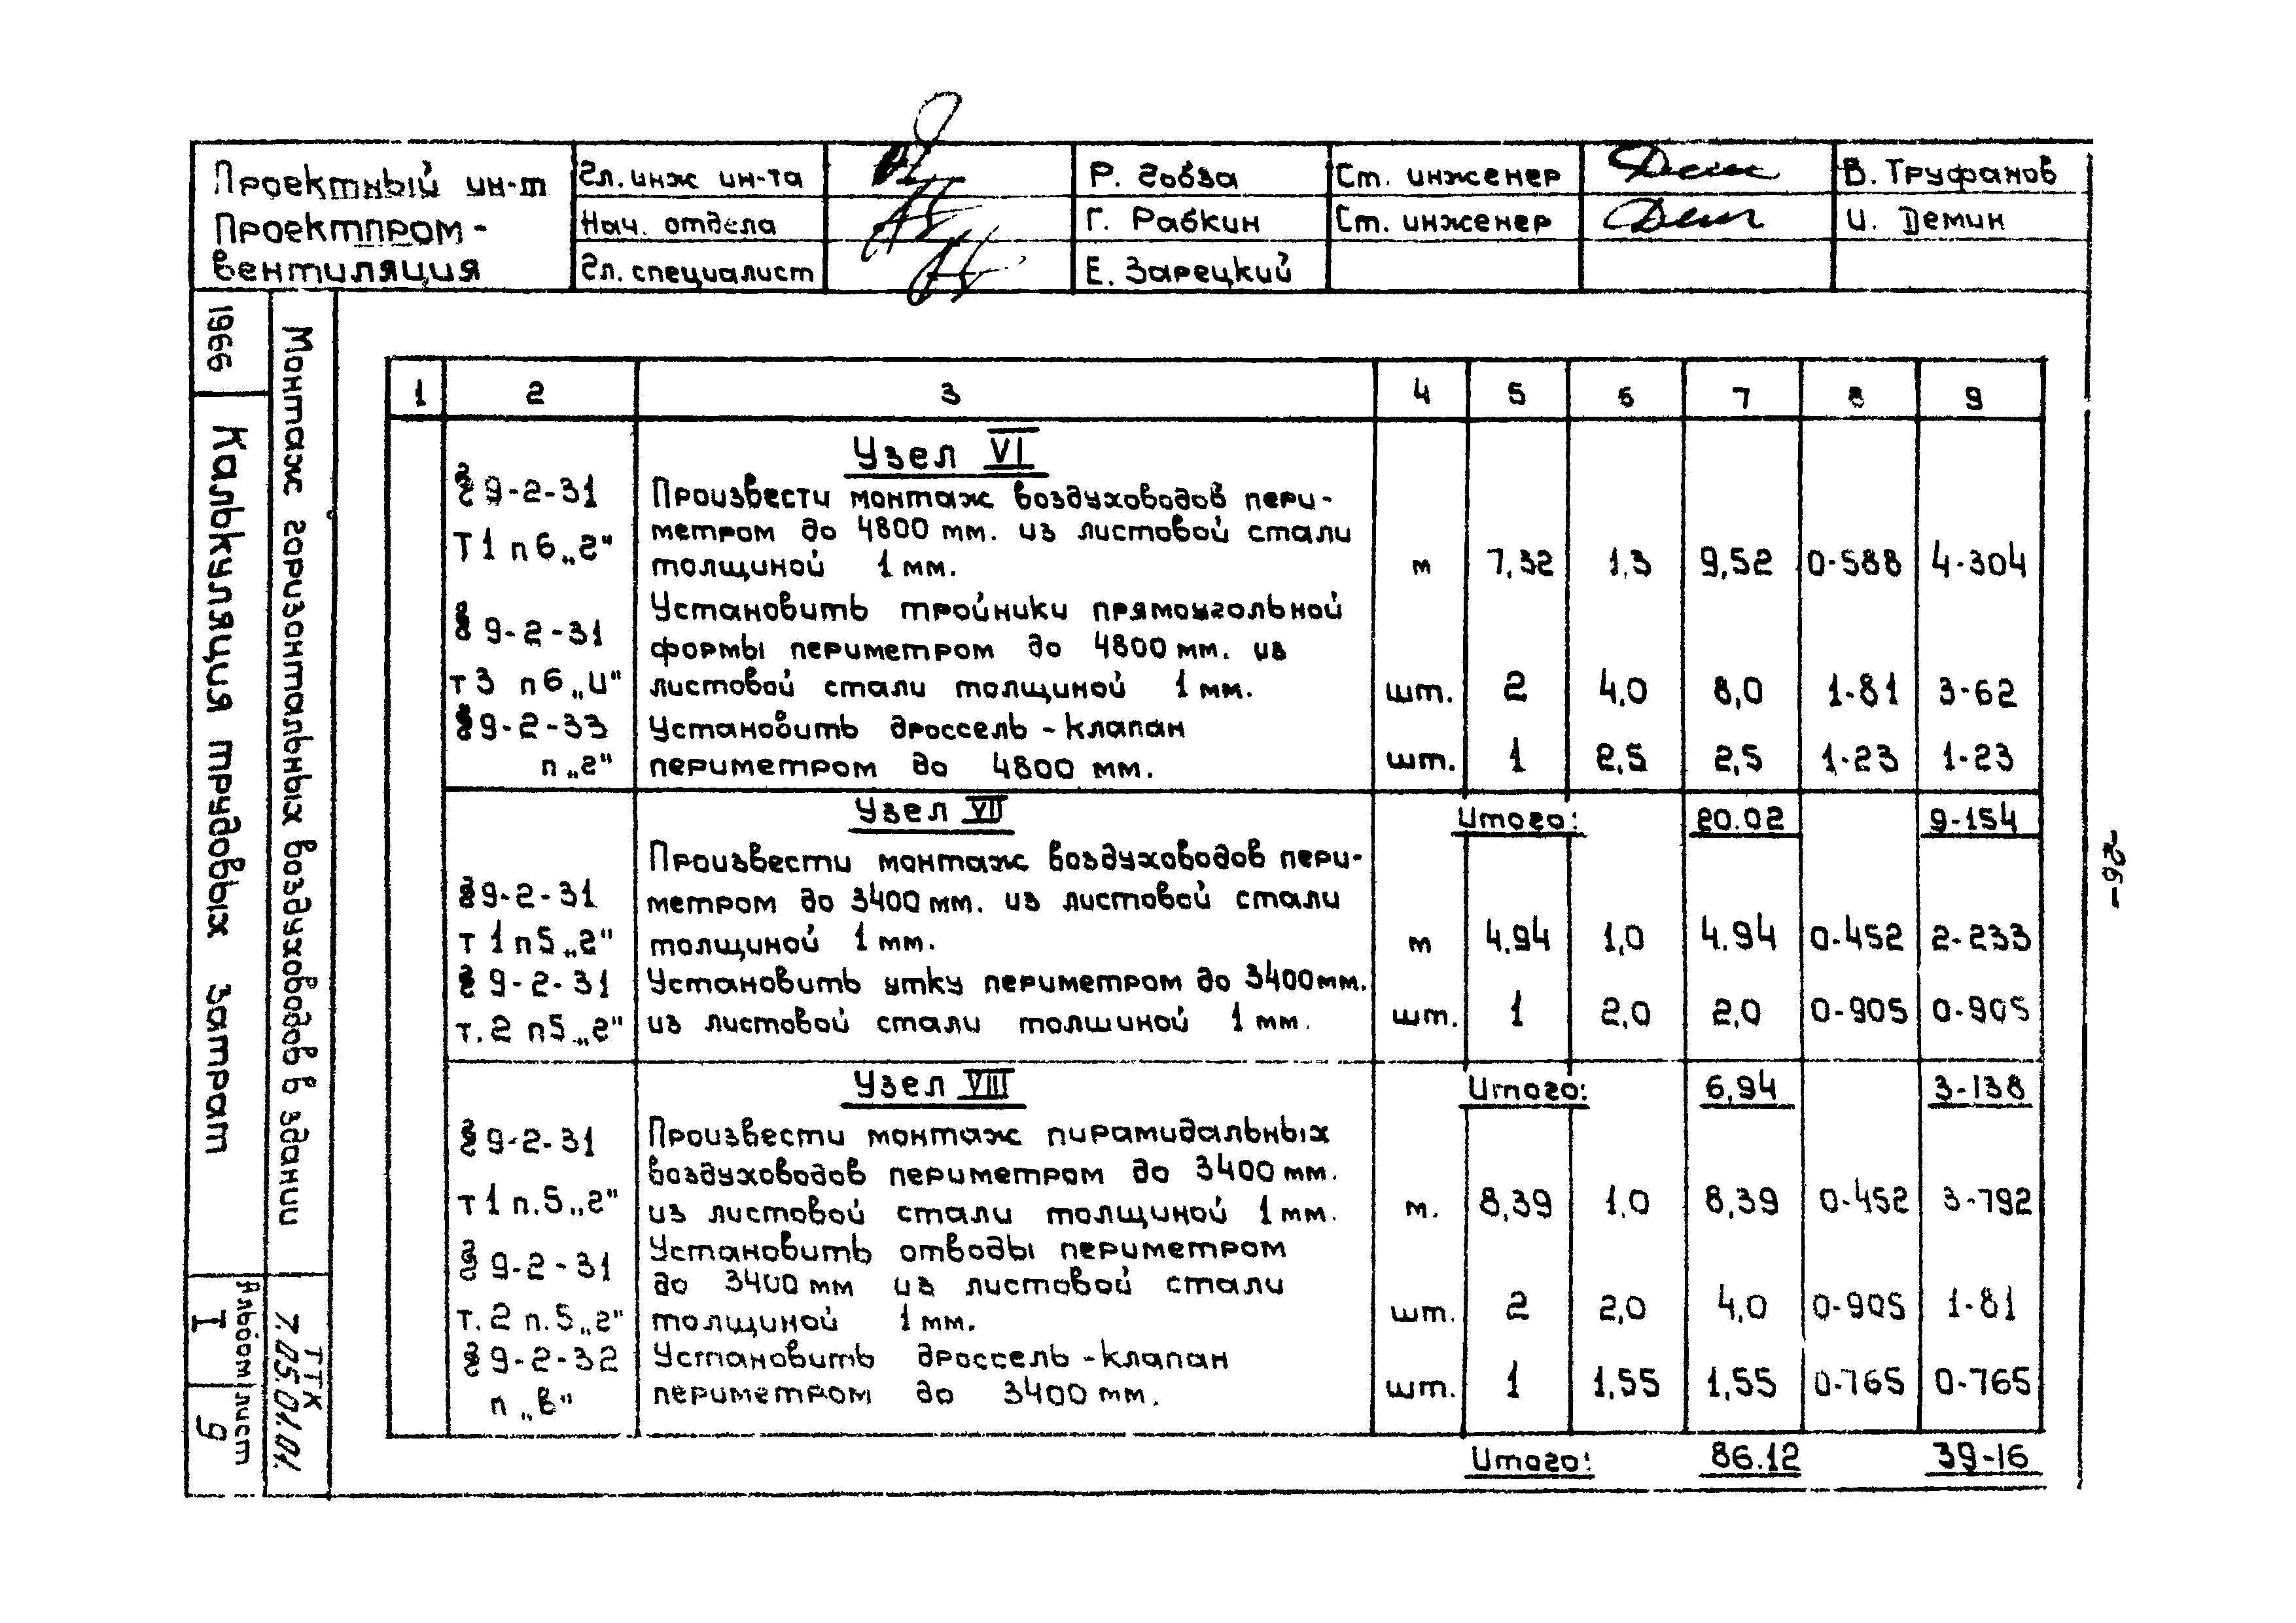 Проектный ин-т
Проектпром-
вентиляция
Гл. инж ин-та Р. Гобза Ст. инженер В. Труфанов
Нач. отдела Г. Рабкин Ст. инженер И. Демин
Гл. специалист Е. Зарецкий
1966
Калькуляция трудовых затрат
Монтаж горизонтальных воздуховодов в здании
Альбом I
лист 9
ТТК
7.05.01.01.
1 2 3 4 5 6 7 8 9
Узел VI
§ 9-2-31 Произвести монтаж воздуховодов пери-
Т1 п6 „г" метром до 4800 мм. из листовой стали
толщиной 1 мм. м 7,32 1,3 9,52 0-588 4-304
§ 9-2-31 Установить тройники прямоугольной
формы периметром до 4800 мм. из
т3 п6 „и" листовой стали толщиной 1 мм. шт. 2 4,0 8,0 1-81 3-62
§ 9-2-33 Установить дроссель-клапан
п „г" периметром до 4800 мм. шт. 1 2,5 2,5 1-23 1-23
Узел VII Итого: 20.02 9-154
Произвести монтаж воздуховодов пери-
§ 9-2-31 метром до 3400 мм. из листовой стали
т 1 п5 „г" толщиной 1 мм. м 4.94 1,0 4.94 0-452 2-233
§ 9-2-31 Установить утку периметром до 3400 мм.
т. 2 п5 „г" из листовой стали толшиной 1 мм. шт. 1 2,0 2,0 0-905 0-905
Узел VIII Итого: 6,94 3-138
§ 9-2-31 Произвести монтаж пирамидальных
воздуховодов периметром до 3400 мм.
т 1 п.5 „г" из листовой стали толщиной 1 мм. м. 8,39 1,0 8,39 0-452 3-792
§ 9-2-31 Установить отводы периметром
до 3400 мм из листовой стали
т. 2 п. 5 „г" толщиной 1 мм. шт. 2 2,0 4,0 0-905 1-81
§ 9-2-32 Установить дроссель-клапан
п „в" периметром до 3400 мм. шт. 1 1,55 1,55 0-765 0-765
Итого: 86.12 39-16
-26-